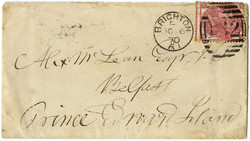 BRIGHTON
70
Alex McLean Esqr
Belfast
Prince Edward Island